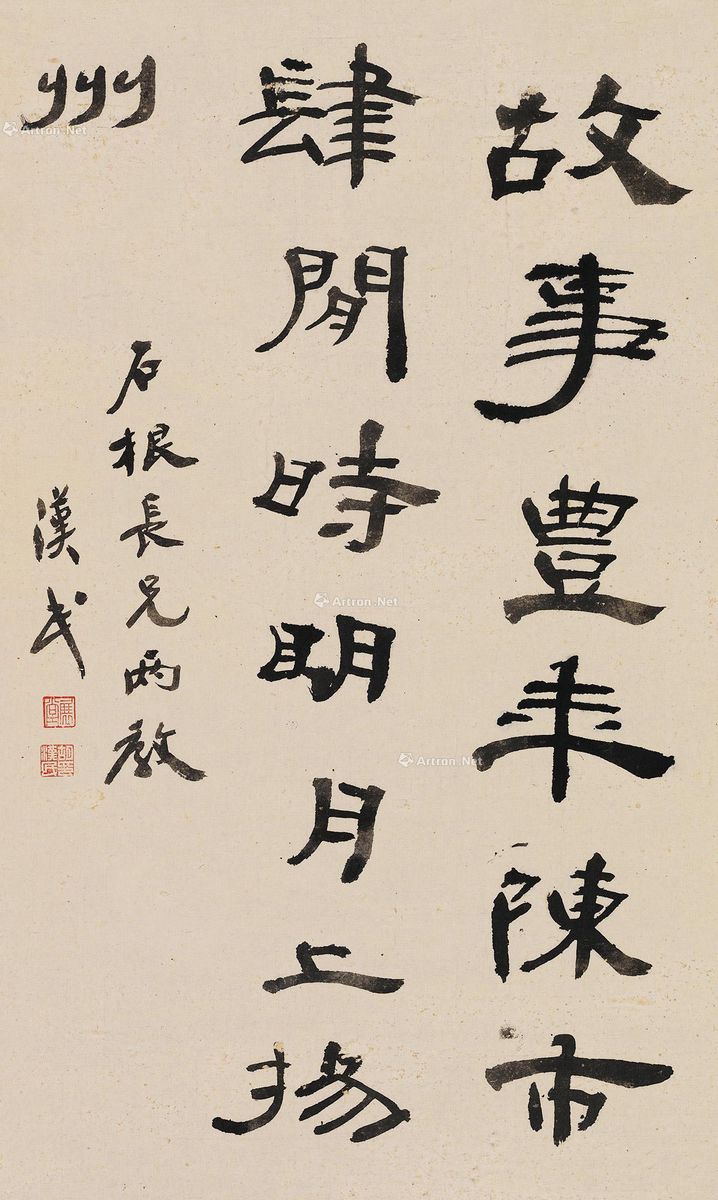 故事豊年陳市
肆閒時明月上揚
州
石根長兄兩教
漢民
展堂
胡漢民
Artron.Net
Artron.Net
Artron.Net